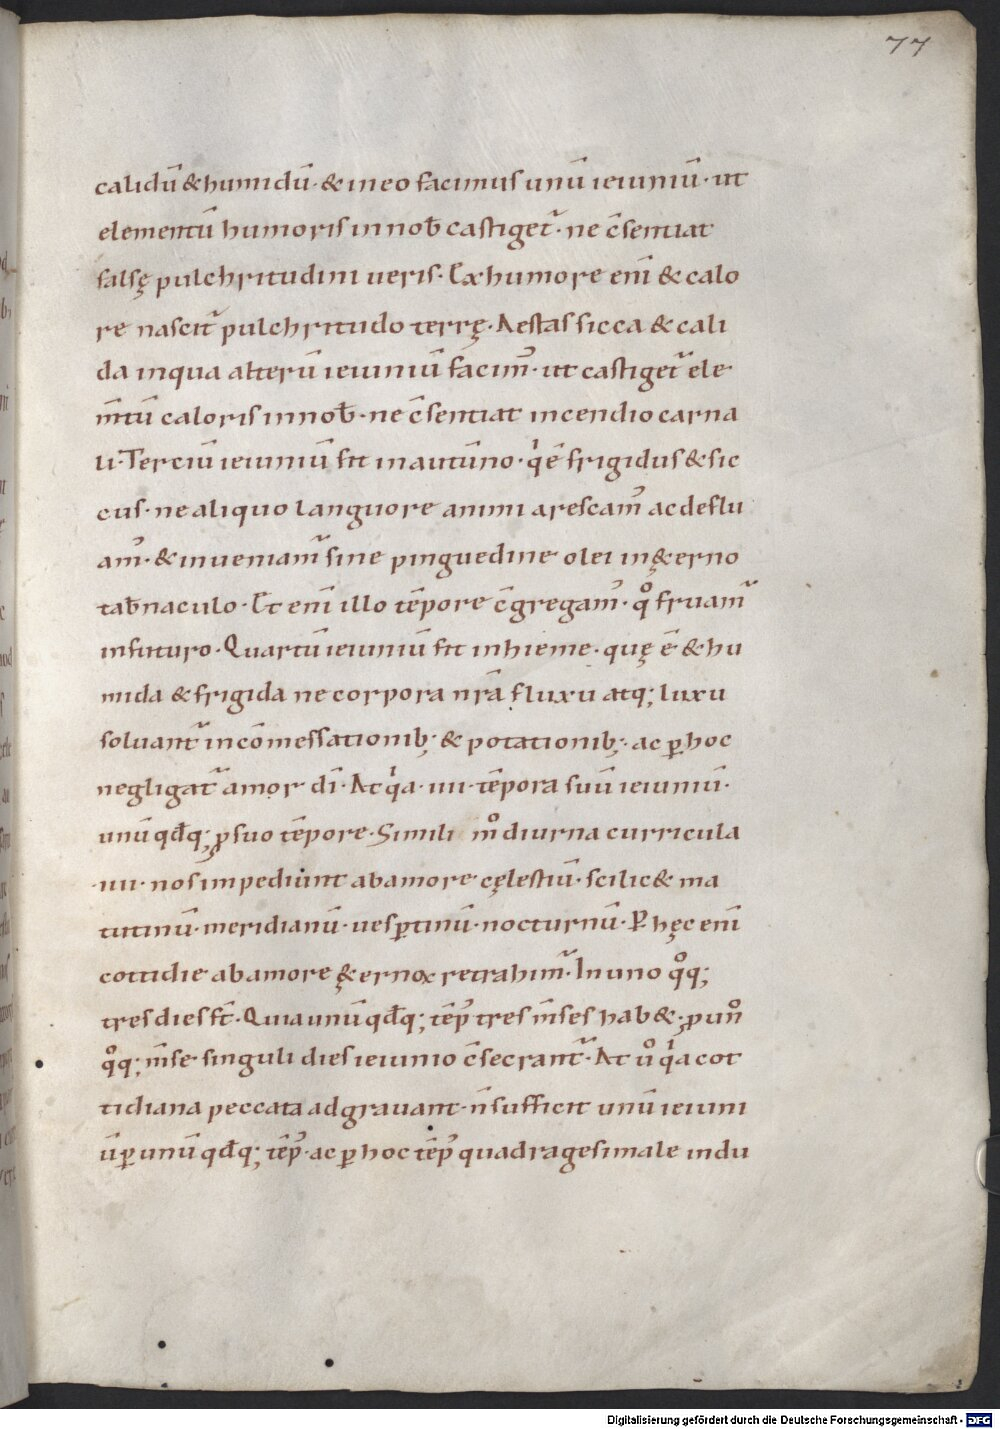 77
calidū & humidū· & in eo facimus unū ieiuniū· ut
elementū humoris in nob̄ castiget᷑· ne c̄sentiat
salsę pulchritudini ueris· Ex humore eni̅ & calo
re nascit᷑ pulchritudo terrę· Aestas sicca & cali
da in qua alterū ieiuniū facim᷒· ut castiget᷑ ele
m̄tū caloris in nob̄· ne c̄sentiat incendio carna
li· Terciū ieiuniū fit in autūno· qͥ ē frigidus & sic
cus· ne aliquo languore animi arescam᷒ ac deflu
am᷒· & inueniam᷑ sine pinguedine olei in ę&erno
tab̄naculo· Et eni̅ illo tēpore c̄gregam᷒· qͦ fruam᷑
in futuro· Quartū ieiuniū fit in hieme· quę ē & hu
mida & frigida ne corpora nr̄a fluxu atq; luxu
soluant᷑ in cōmessationib; & potationib;· ac ꝑ hoc
negligat᷑ amor dī· At qͥa ·iiii· tēpora suū ieiuniū·
unū qd̄q; ꝓ suo tēpore· Simili mͦ diurna curricula
·iiii· nos impediunt ab amore cęlestiū· scilic& ma
tutinū· meridianū· uesꝑtinū· nocturnū· Ꝑ hęc eni̅
cottidie ab amore ę&ernoꝝ retrahim᷑· In uno qͦq;
tres dies st̄· Quia unū qd̄q; tēp᷒ tres m̄ses hab&· ꝓ unͦ
qͦq; m̄se singuli dies ieiunio c̄secrant᷑· At uͦ qͥa cot
tidiana peccata adgrauant· n̄ sufficit unū ieiuni
ū ꝑ unū qd̄q; tēp᷒· ac ꝑ hoc tēp᷒ quadragesimale indu
Digitalisierung gefördert durch die Deutsche Forschungsgemeinschaft - DFG